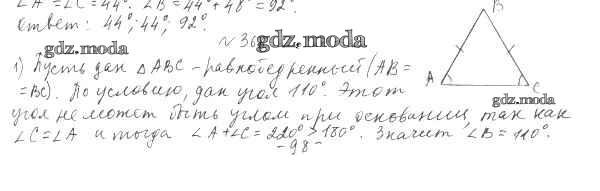 ∠A = ∠C = 44°. ∠B = 44° + 48° = 92°.
Ответ: 44°; 44°; 92°.
gdz.moda
№ 36
gdz.moda
B
1) Пусть дан △ABC – равнобедренный (AB =
= BC). По условию, дан угол 110°. Этот
A
C
gdz.moda
угол не может быть углом при основании, так как
∠C = ∠A и тогда ∠A + ∠C = 220° > 180°. Значит ∠B = 110°.
-98-